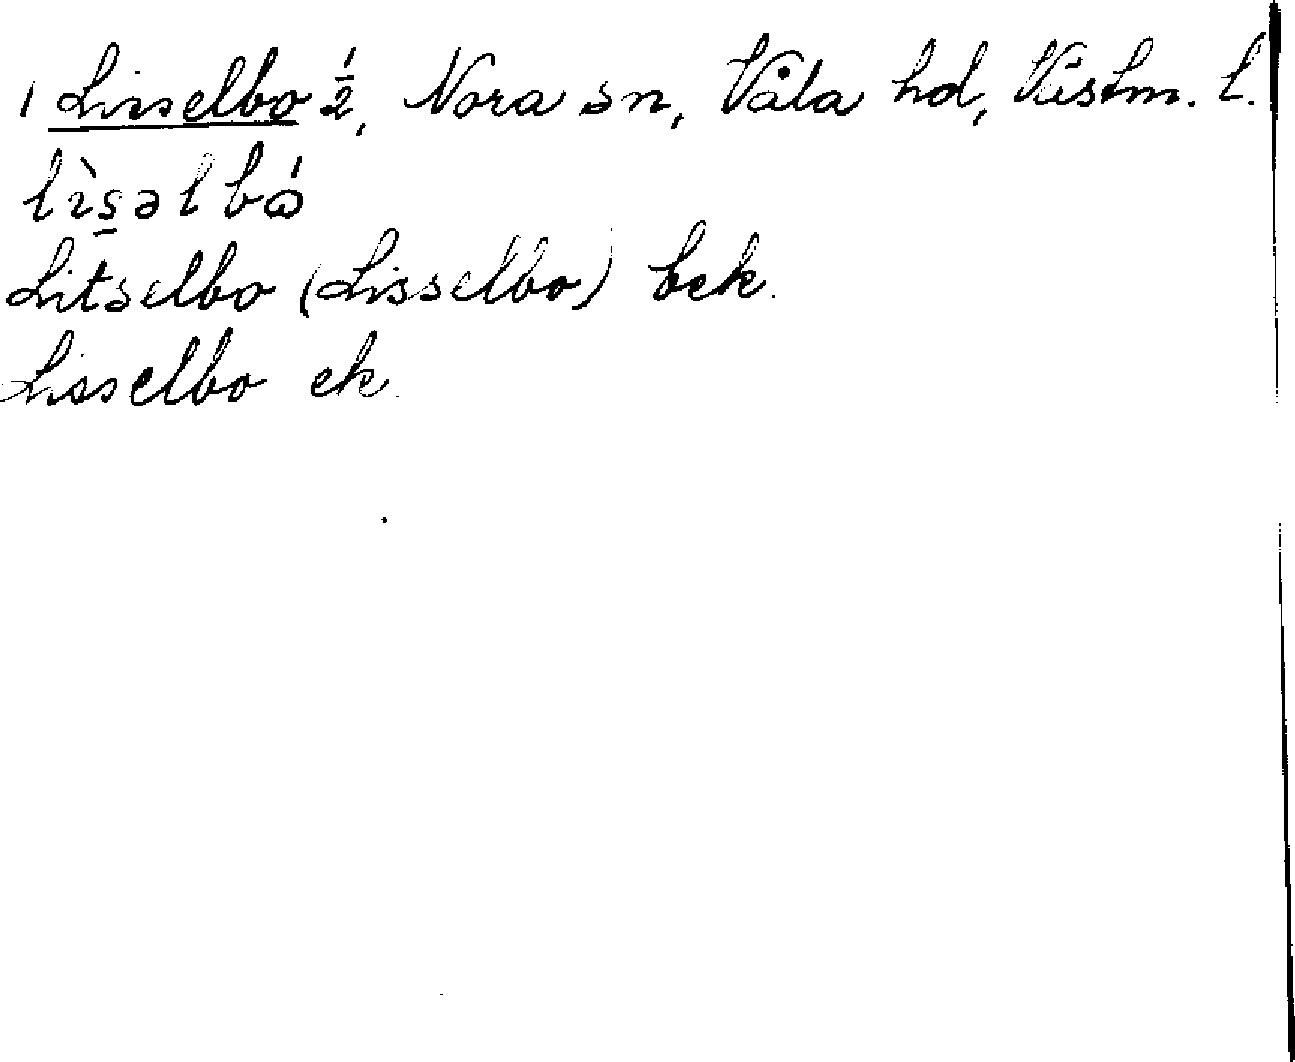 1 Lisselbo ½, Nora sn, Våla hd, Västm. l.
lìs̠əlbɷ́
Litselbo (Lisselbo) bek.
Lisselbo ek.